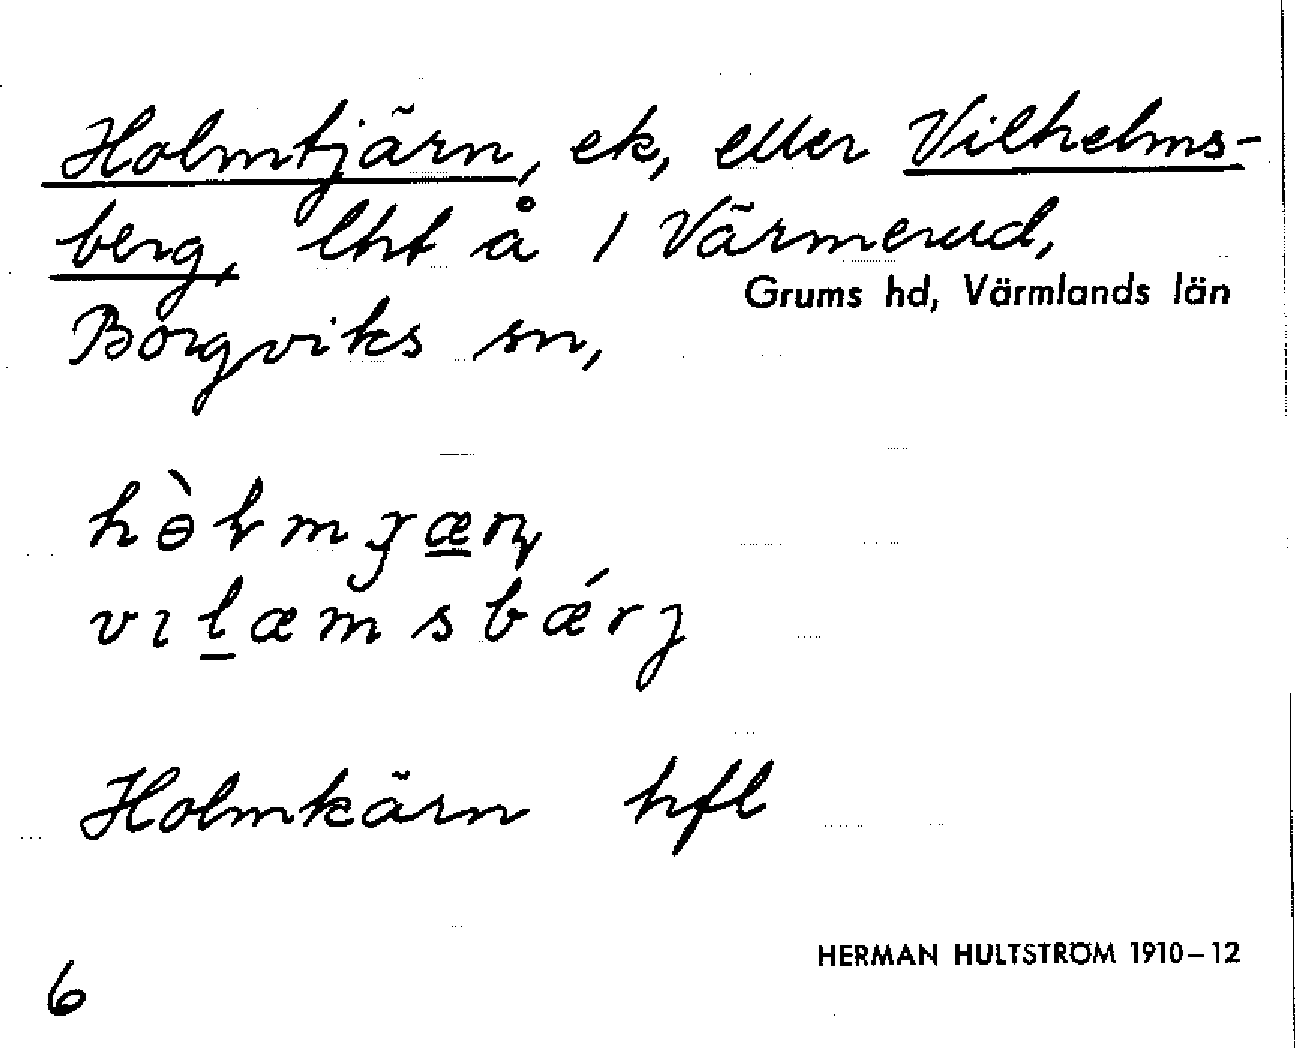 Holmtjärn, ek, eller Vilhelms-
berg, lht å 1 Värmerud,
Grums hd, Värmlands län
Borgviks sn,
vılæmsbǽrȷ
Holmkärn hfl
HERMAN HULTSTRÖM 1910–12
6